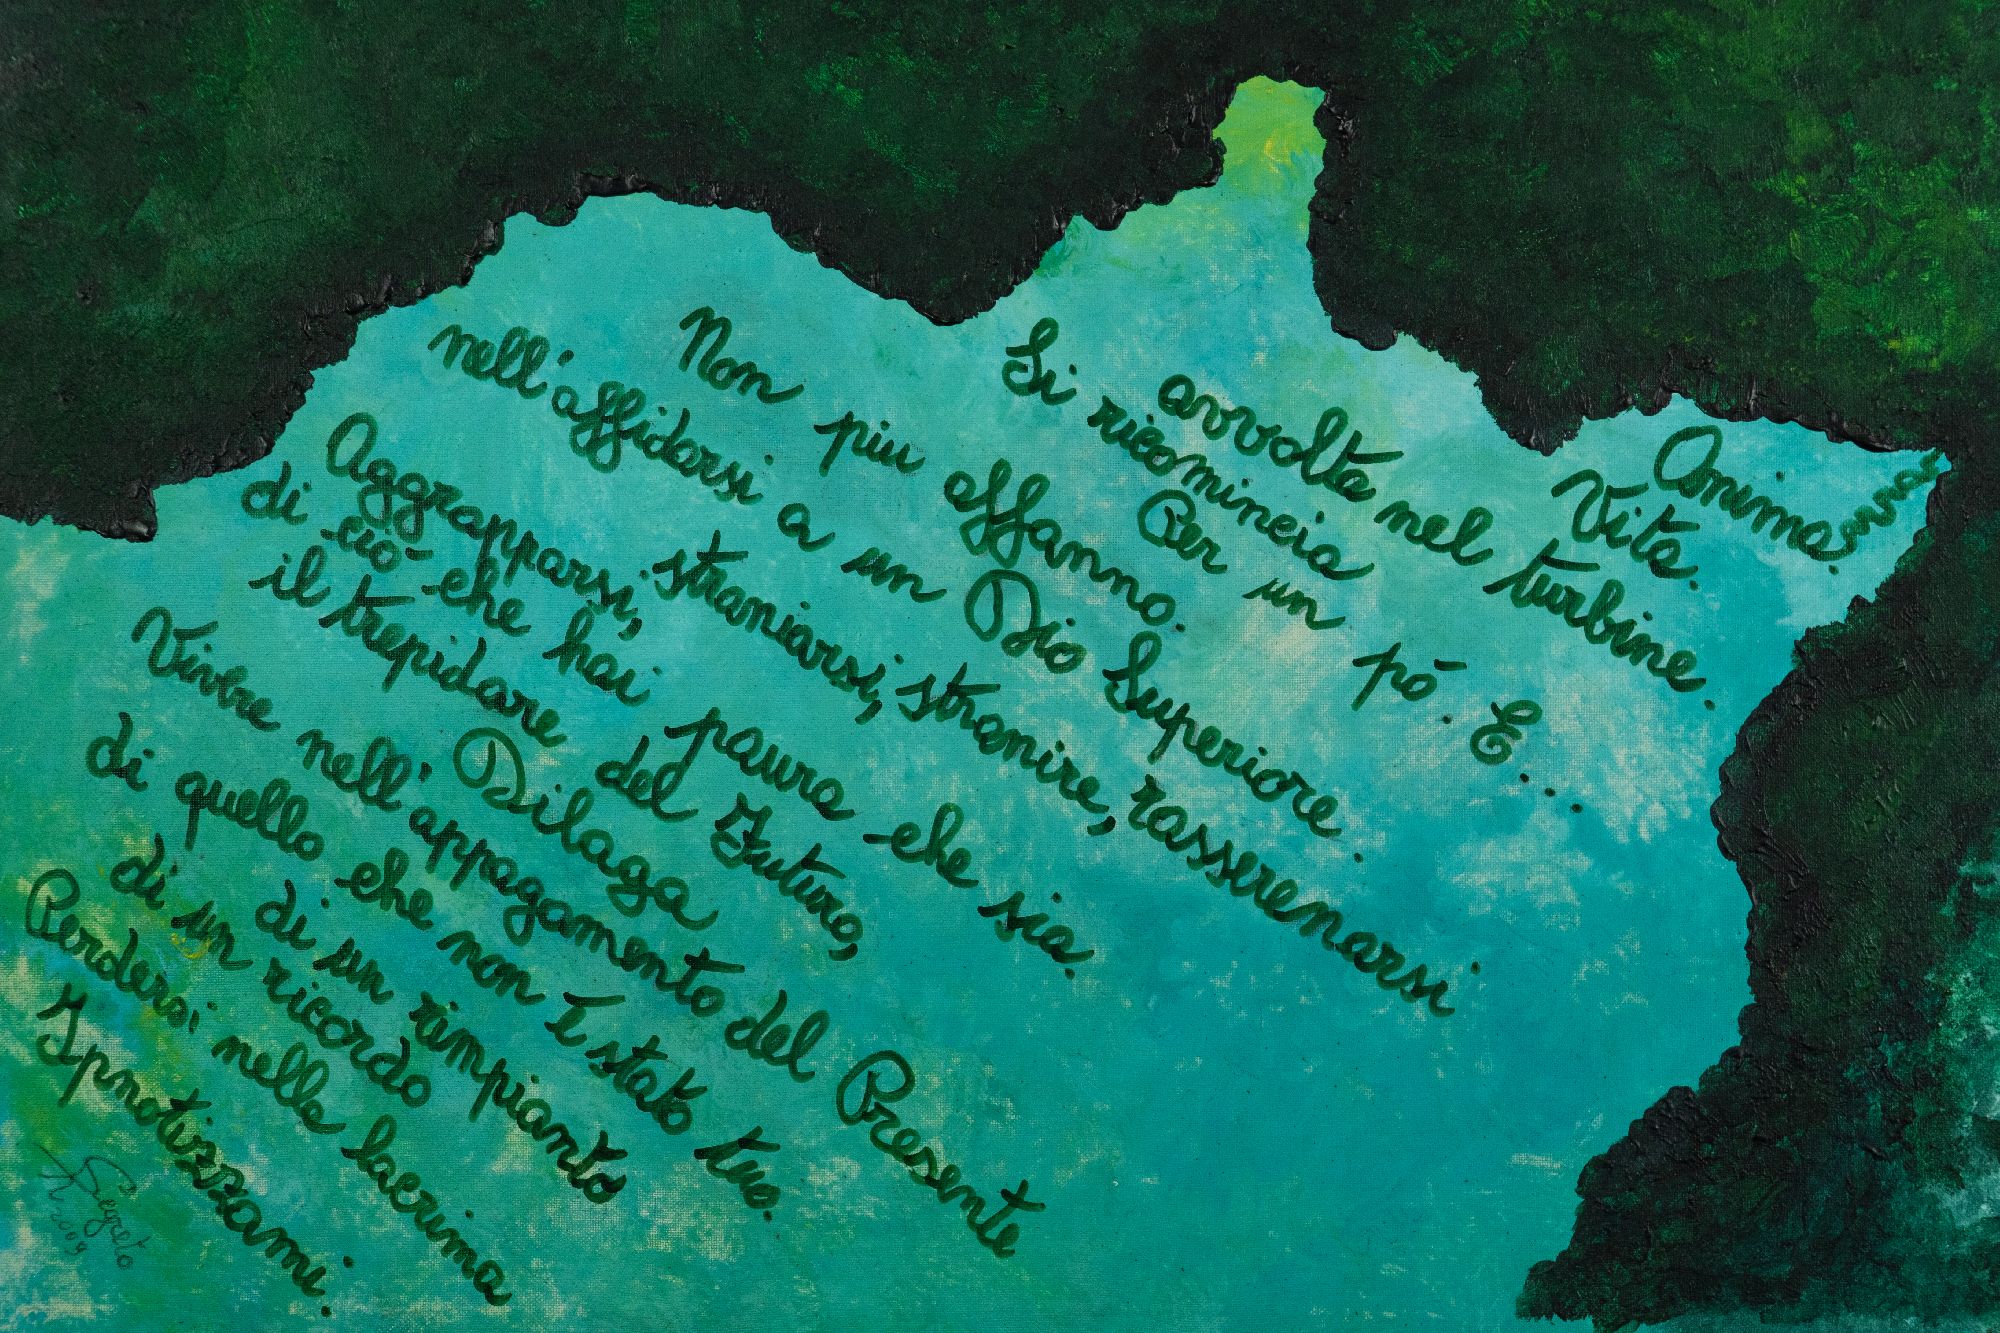 Anima.
Vita.
avvolta nel turbine.
Si ricomincia
Per un pò. E...
Non piu affanno.
nell'affidarsi a un Dio Superiore.
Aggrapparsi, straniarsi, stranire, rasserenarsi
di ciò che hai paura che sia.
il trepidare del Futuro,
Dilaga
Vivere nell'appagamento del Presente
di quello che non è stato tuo.
di un rimpianto
di un ricordo
Perdersi nella lacrima
Ipnotizzami.
Segreto
2009